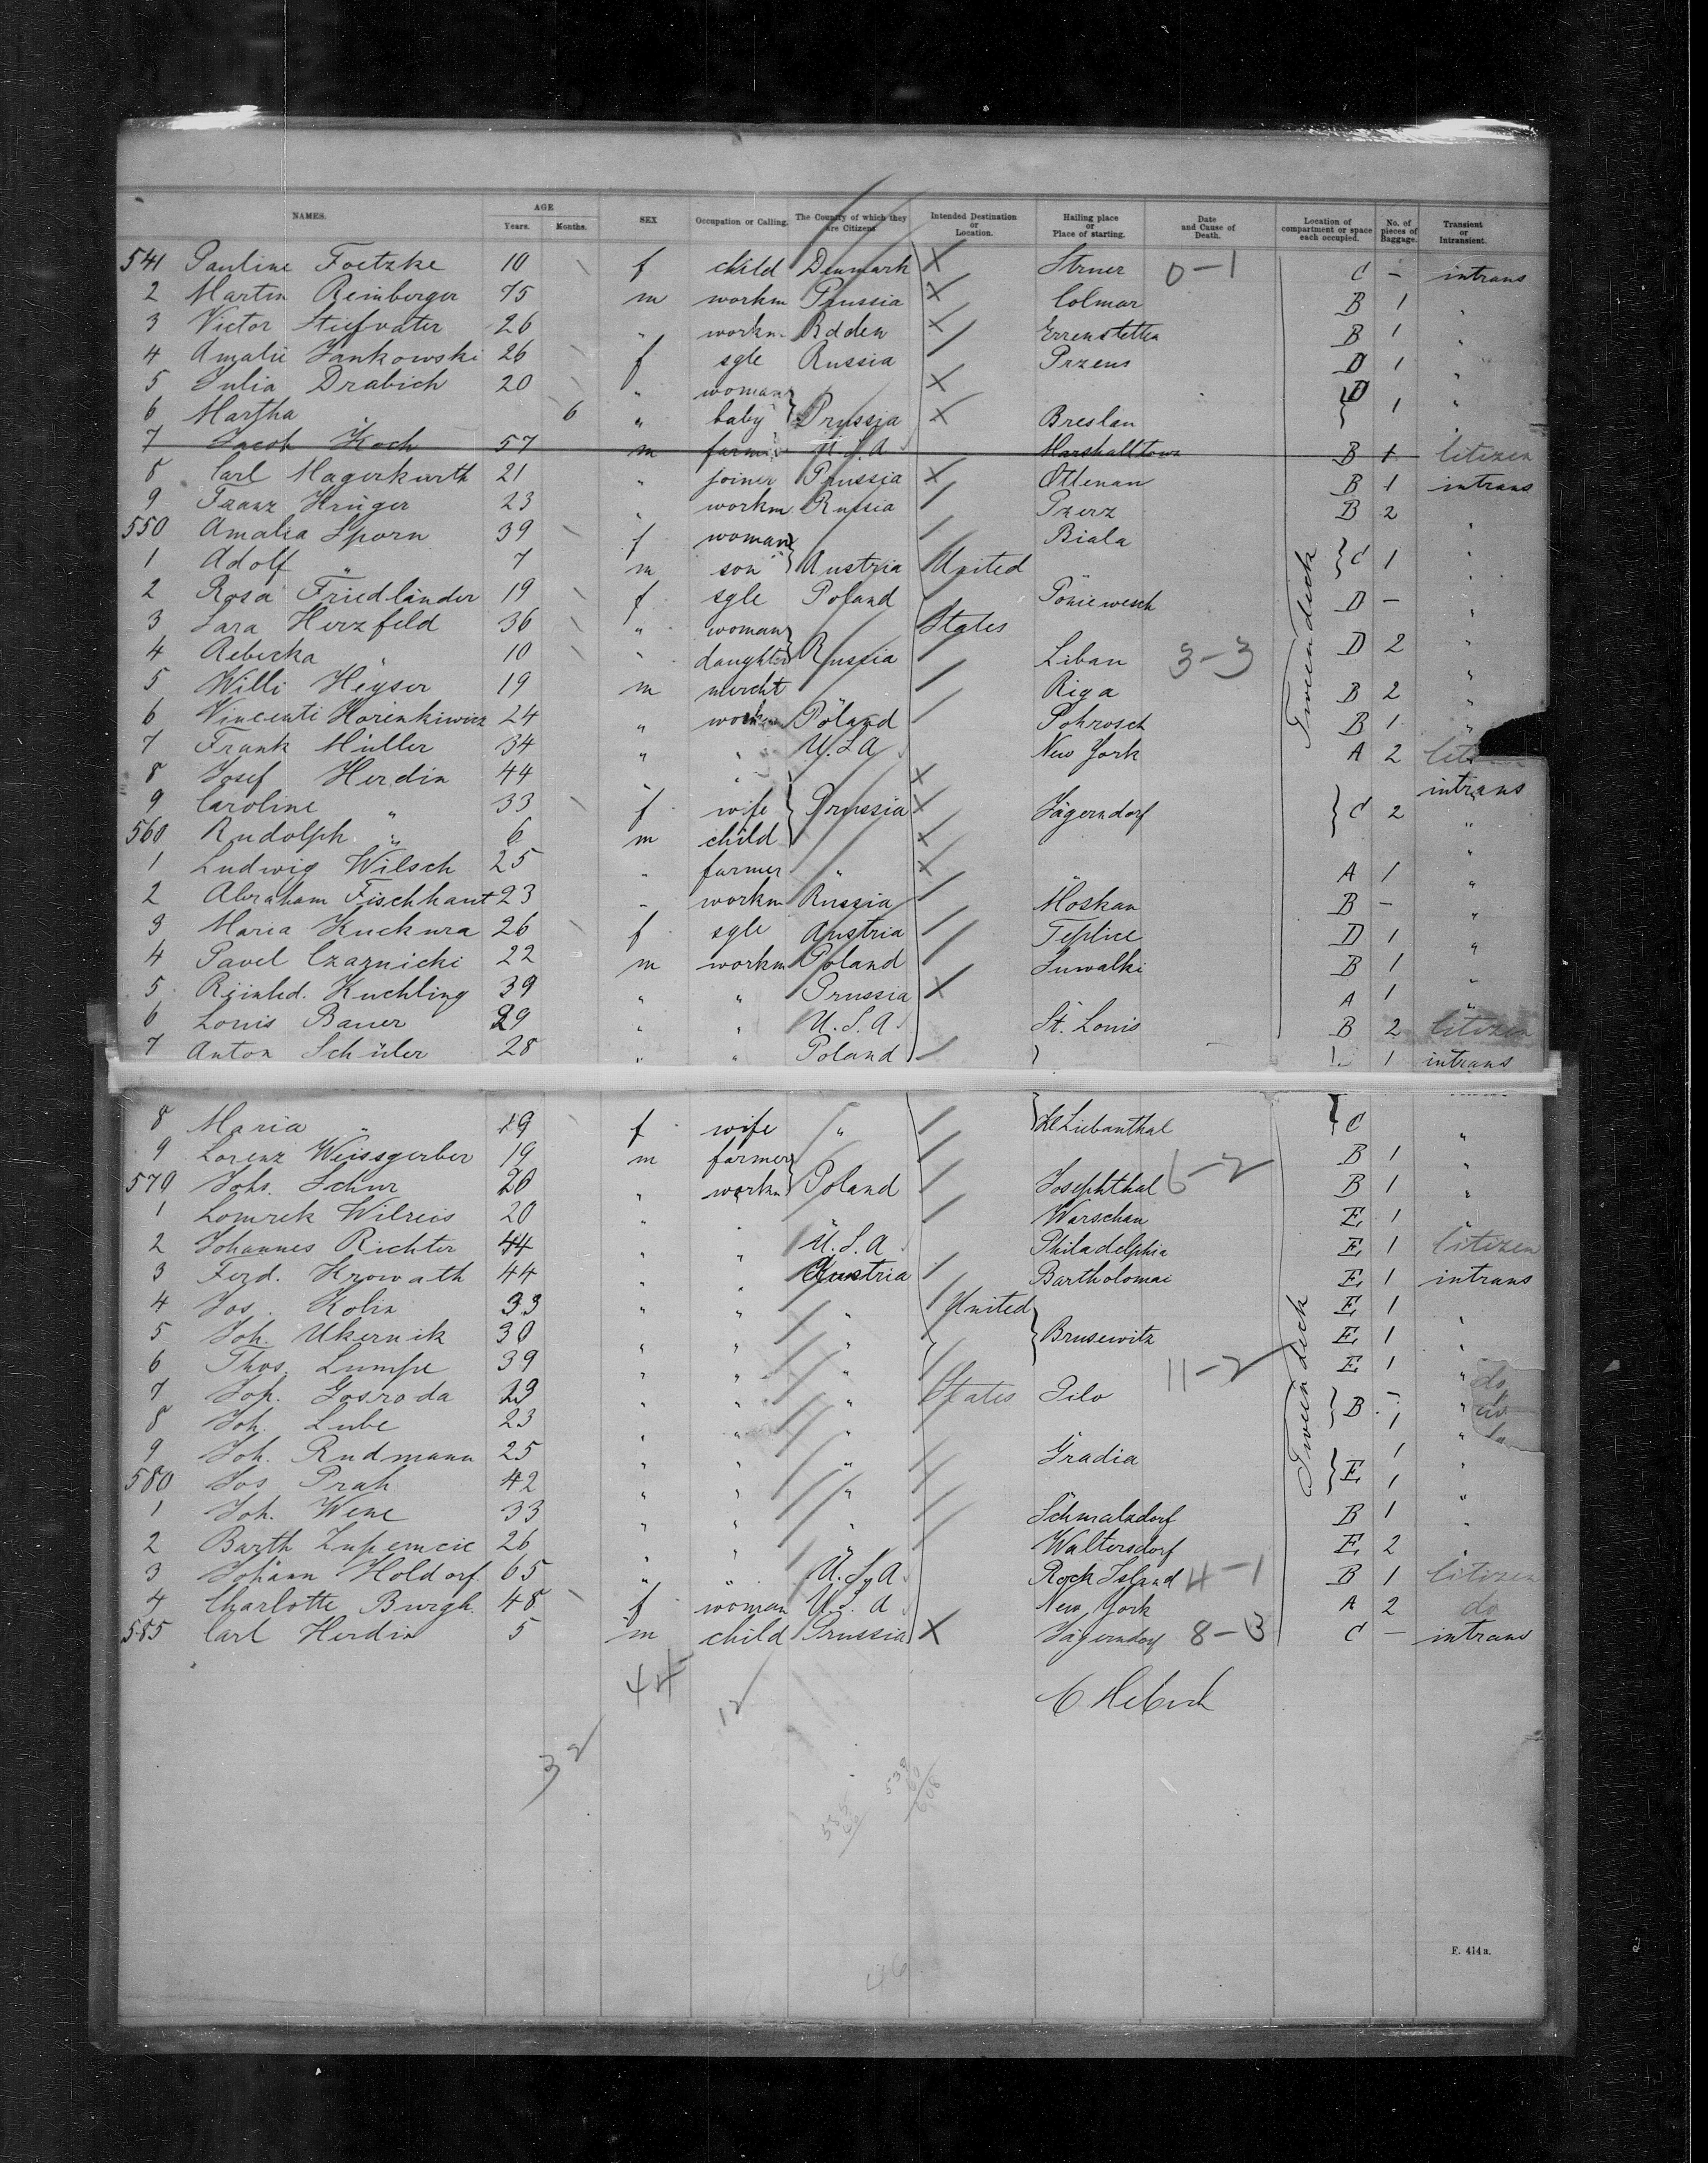 NAMES. AGE Years. Months. SEX Occupation or Calling. The Country of which they are Citizens Intended Destination or Location. Hailing place or Place of starting. Date and Cause of Death. Location of compartment or space each occupied. No. of pieces of Baggage. Transient or Intransient.
541 Pauline Foetzke 10 f child Denmark X Struer 0-1 C - intrans
2 Martin Reinberger 75 m workm Prussia X Colmar B 1 "
3 Victor Stiefvater 26 " workm Baden X Errenstetten B 1 "
4 Amalie Jankowski 26 f sgle Russia / Przeus D 1 "
5 Julia Drabich 20 " woman X D "
6 Martha " 6 " baby Prussia X Breslau 1 "
7 Jacob Koch 57 m farmer U.S.A Marshalltown B 1 Citizen
8 Carl Magerkurth 21 " joiner Prussia X Ottenau B 1 intrans
9 Franz Krüger 23 " workm Russia / Pzerz B 2
550 Amalia Sporn 39 f woman / Biala "
1 Adolf " 7 m son Austria United C 1 "
2 Rosa Friedländer 19 f sgle Poland / Poniewesch D - "
3 Sara Herzfeld 36 " woman States "
4 Rebecka " 10 " daughter Russia / Libau 3-3 D 2 "
5 Willi Heyser 19 m mercht " / Riga B 2 "
6 Vincenti Horinkiwicz 24 " workm Poland / Pohrosch B 1 "
7 Frank Müller 34 " " U.S.A New York A 2
8 Josef Herdin 44 " " X intrans
9 Caroline " 33 f wife Prussia X Jägerndorf C 2 "
560 Rudolph " 6 m child X "
1 Ludwig Wilsch 25 " farmer " X " A 1 "
2 Abraham Fischhaut 23 " workm Russia / Moskau B - "
3 Maria Kuckura 26 f sgle Austria / Teplice D 1 "
4 Pavel Czarnicki 22 m workm Poland / Suwalki B 1 "
5 Reinhd. Kuchling 39 " " Prussia X A 1 "
6 Louis Bauer 29 " " U.S.A. St. Louis B 2 Citizen
7 Anton Schüler 28 " " Poland / 1 intrans
8 Maria " 29 f wife " / Kl Liebanthal C "
9 Lorenz Weissgerber 19 m farmer / B 1 "
570 Johs. Schur 20 " workm Poland / Josephthal 6-2 B 1 "
1 Lomrek Wilreis 20 " " " / Warschau E 1 "
2 Johannes Richter 44 " " U.S.A Philadelphia E 1 Citizen
3 Ferd. Krowath 44 " " Austria / Bartholomai E 1 intrans
4 Jos. Kolin 33 " " " / United E 1 "
5 Joh. Ukernik 30 " " " / Brusewitz E 1 "
6 Thos. Lumpe 39 " " " / 11-2 E 1 " do
7 Joh. Gosroda 29 " " " States Pilo B - "
8 Joh. Lube 23 " " " / 1 "
9 Joh. Rudmann 25 " " " / Gradia 1 "
580 Jos Prah 42 " " " / " E 1 "
1 Joh. Wene 33 " " " / Schmalzdorf B 1 "
2 Barth Zupemcic 26 " " " / Waltersdorf E 2 "
3 Johann Holdorf. 65 " " U.S.A. Rock Island 4-1 B 1 Citizen
4 Charlotte Burgh. 48 f woman U.S.A New York A 2 do
585 Carl Herdin 5 m child Prussia X Jägerndorf 8-3 C - intrans
Tween deck
Tween deck
44
12
32
46
F. 414 a.